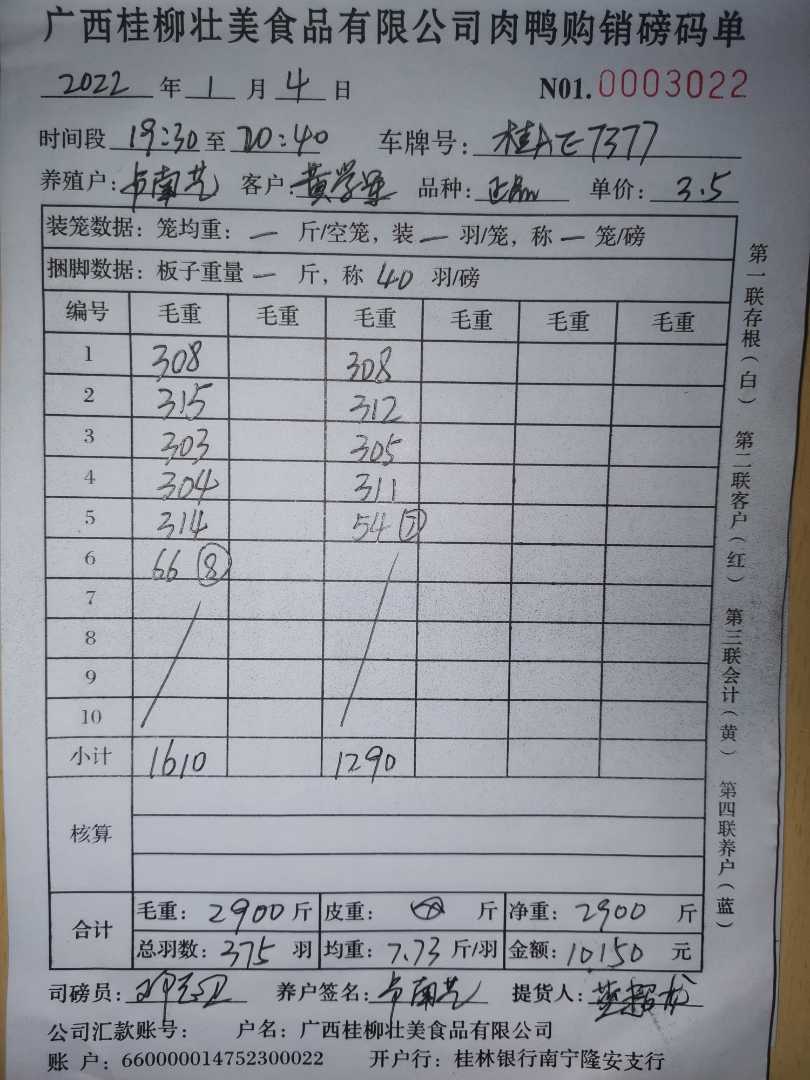 广西桂柳壮美食品有限公司肉鸭购销磅码单
2022 年 1 月 4 日 N01. 0003022
时间段 19:30 至 20:40 车牌号: 桂AE7377
养殖户: 卢南艺 客户: 黄学军 品种: 单价: 3.5
装笼数据: 笼均重: 一 斤/空笼, 装 一 羽/笼, 称 一 笼/磅
捆脚数据: 板子重量 一 斤, 称 40 羽/磅
编号 毛重 毛重 毛重 毛重 毛重 毛重
1 308 308
2 315 312
3 303 305
4 304 311
5 314 54 ⑦
6 66 ⑧
7
8
9
10
小计 1610 1290
核算
合计
毛重: 2900 斤 皮重: 斤 净重: 2900 斤
总羽数: 375 羽 均重: 7.73 斤/羽 金额: 10150 元
司磅员: 养户签名: 卢南艺 提货人:
公司汇款账号: 户名: 广西桂柳壮美食品有限公司
账 户: 660000014752300022 开户行: 桂林银行南宁隆安支行
第一联存根(白) 第二联客户(红) 第三联会计(黄) 第四联养户(蓝)